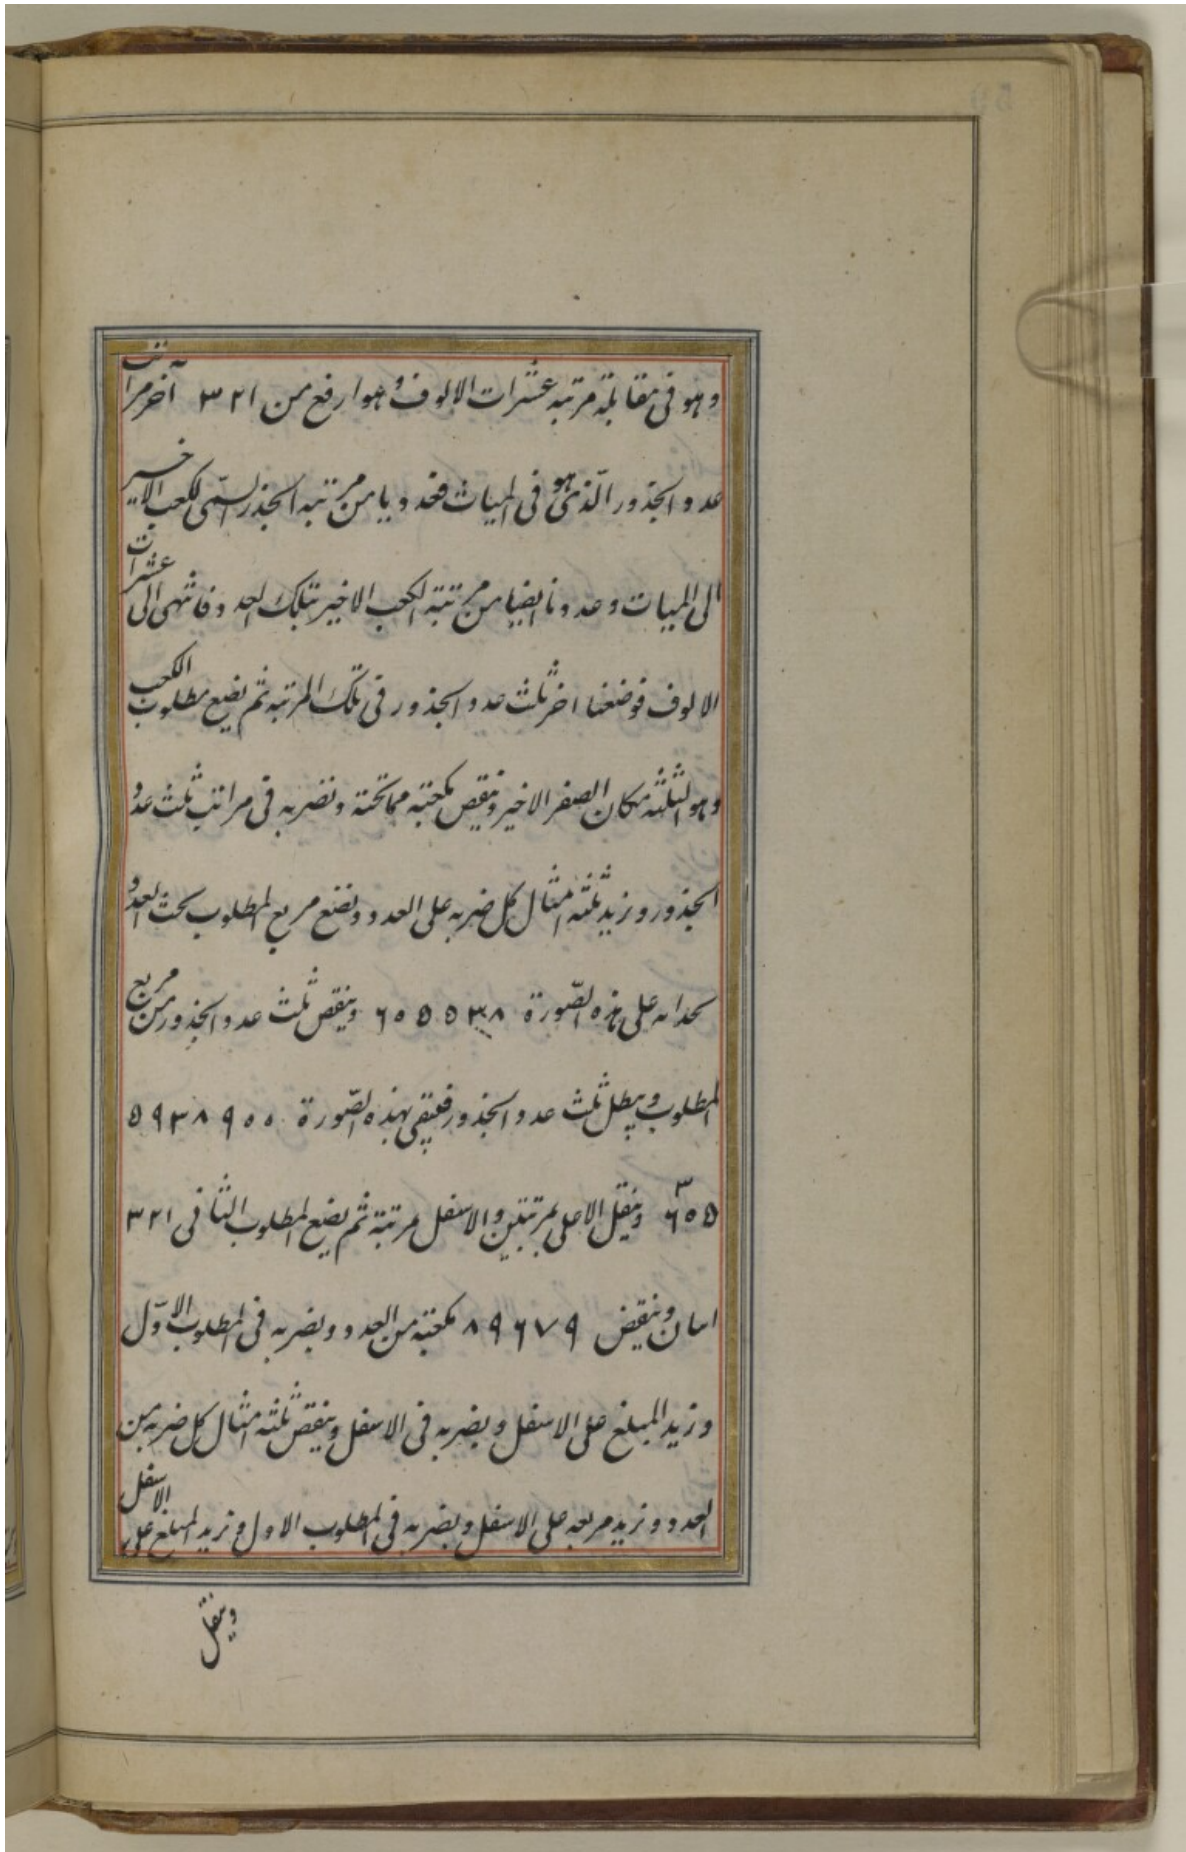 وهو فى مقابلة مرتبة عشرات الالوف وهو ارفع من ٣٢١ آخر مراتب
عدد الجذور الّذى هو فى الميات فحددنا من مرتبة الجذر السمى لكعب الاخير
الى الميات وعددنا ايضا من مرتبة الكعب الاخير بتلك العدد فانتهى الى عشرات
الالوف فوضعنا اخر ثلث عدد الجذور فى تلك المرتبة ثم نضع مطلوب الكعب
وهو الثلثه مكان الصفر الاخير وننقص مكعبه مما تحته ونضربه فى مراتب ثلث عدد
الجذور ونزيد ثلثه امثال كل ضربه على العدد ونضع مربع المطلوب تحت العدد
بحدائه على هذه الصّورة ٦٥٥٥٣٨ وينقص ثلث عدد الجذور من مربع
المطلوب ويبطل ثلث عدد الجذور فيبقى بهذه الصّورة ٥٩٣٨٩٥٥
٣ ٦٥٥ وينقل الاعلى بمرتبتين والاسفل بمرتبة ثم يضع المطلوب الثانى ٣٢١
وينقض ٨٩٦٧٩ مكعبه من العدد ويضربه فى المطلوب الاوّل
ونزيد المبلغ على الاسفل ويضربه فى الاسفل وينقص ثلثه امثال كل ضربه من
العدد ونزيد مربعه على الاسفل ويضربه فى المطلوب الاول ونزيد المبلغ على الاسفل
وينقل